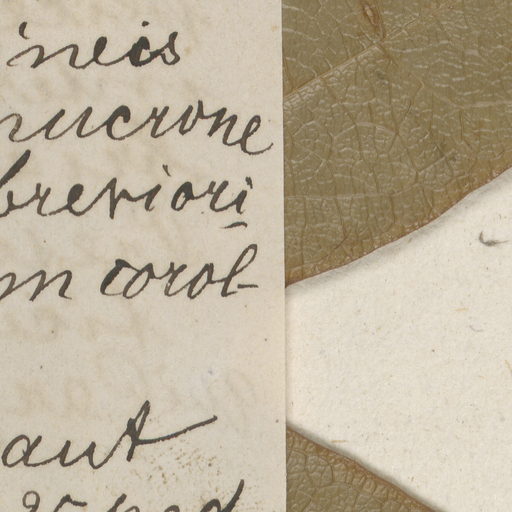 ineis
mucrone
breviori
m corol-
aut
25 ped